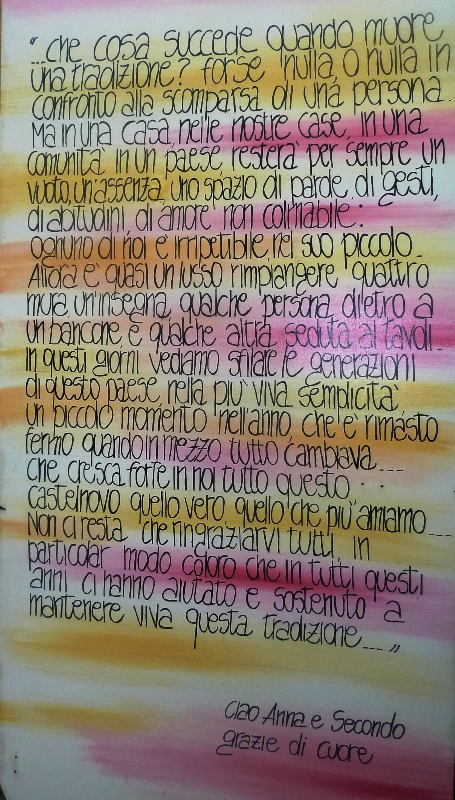 “...che cosa succede quando muore
una tradizione? forse nulla, o nulla in
confronto alla scomparsa di una persona.
Ma in una casa, nelle nostre case, in una
comunità in un paese, resterà per sempre un
vuoto, un'assenza, uno spazio di parole, di gesti,
di abitudini, di amore non colmabile:
ognuno di noi è irripetibile, nel suo piccolo...
Allora è quasi un lusso rimpiangere quattro
mura, un'insegna, qualche persona dietro a
un bancone, e qualche altra seduta ai tavoli...
in questi giorni vediamo sfilare le generazioni
di questo paese, nella più viva semplicità
un piccolo momento nell'anno, che è rimasto
fermo quando in mezzo tutto cambiava....
che cresca forte in noi tutto questo...
castelnovo quello vero quello che più amiamo....
Non ci resta che ringraziarvi tutti, in
particolar modo coloro che in tutti questi
anni ci hanno aiutato e sostenuto a
mantenere viva questa tradizione....”
ciao Anna e Secondo
grazie di cuore